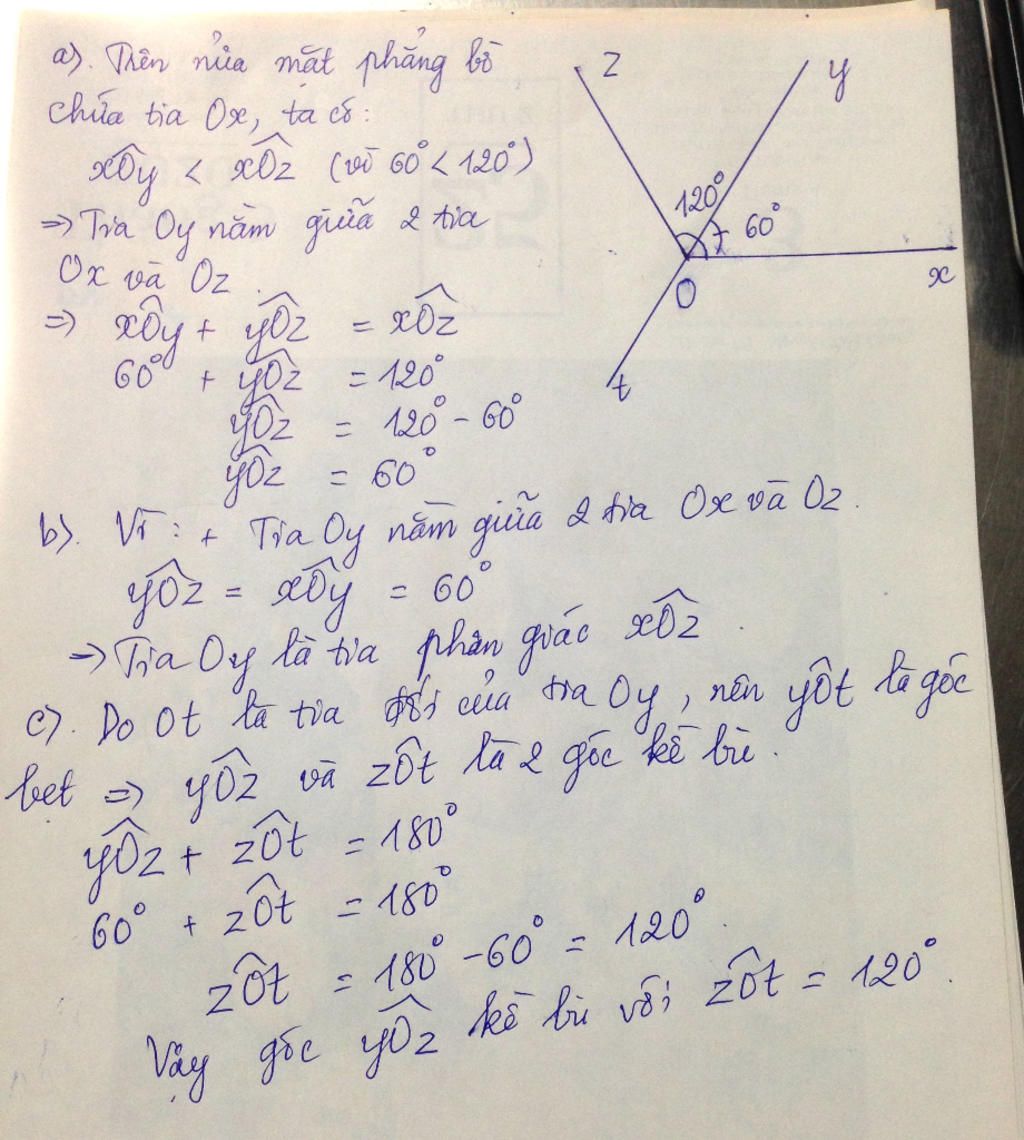 a). Trên nửa mặt phẳng bờ
chứa tia Ox, ta có:
xÔy < xÔz (vì 60° < 120°)
=> Tia Oy nằm giữa 2 tia
Ox và Oz.
=> xÔy + yÔz = xÔz
60° + yÔz = 120°
yÔz = 120° - 60°
yÔz = 60°
z
y
120°
60°
x
O
t
b). Vì: + Tia Oy nằm giữa 2 tia Ox và Oz.
yÔz = xÔy = 60°
=> Tia Oy là tia phân giác xÔz.
c). Do Ot là tia đối của tia Oy, nên yÔt là góc
bẹt => yÔz và zÔt là 2 góc kề bù.
yÔz + zÔt = 180°
60° + zÔt = 180°
zÔt = 180° - 60° = 120°.
Vậy góc yÔz kề bù với zÔt = 120°.